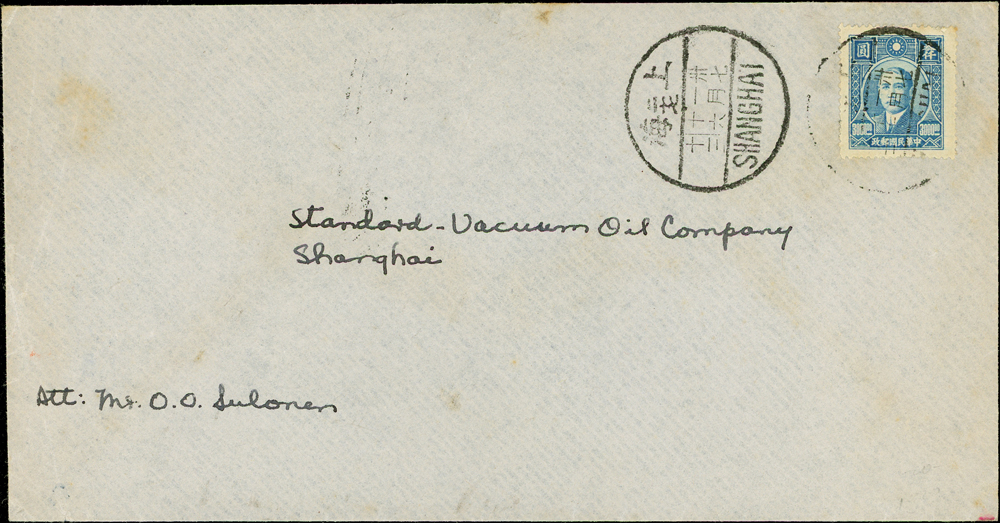 上海
SHANGHAI
圓
中華民國郵政
Standard-Vacuum Oil Company
Shanghai
Att: Mr. O.O. Sulonen